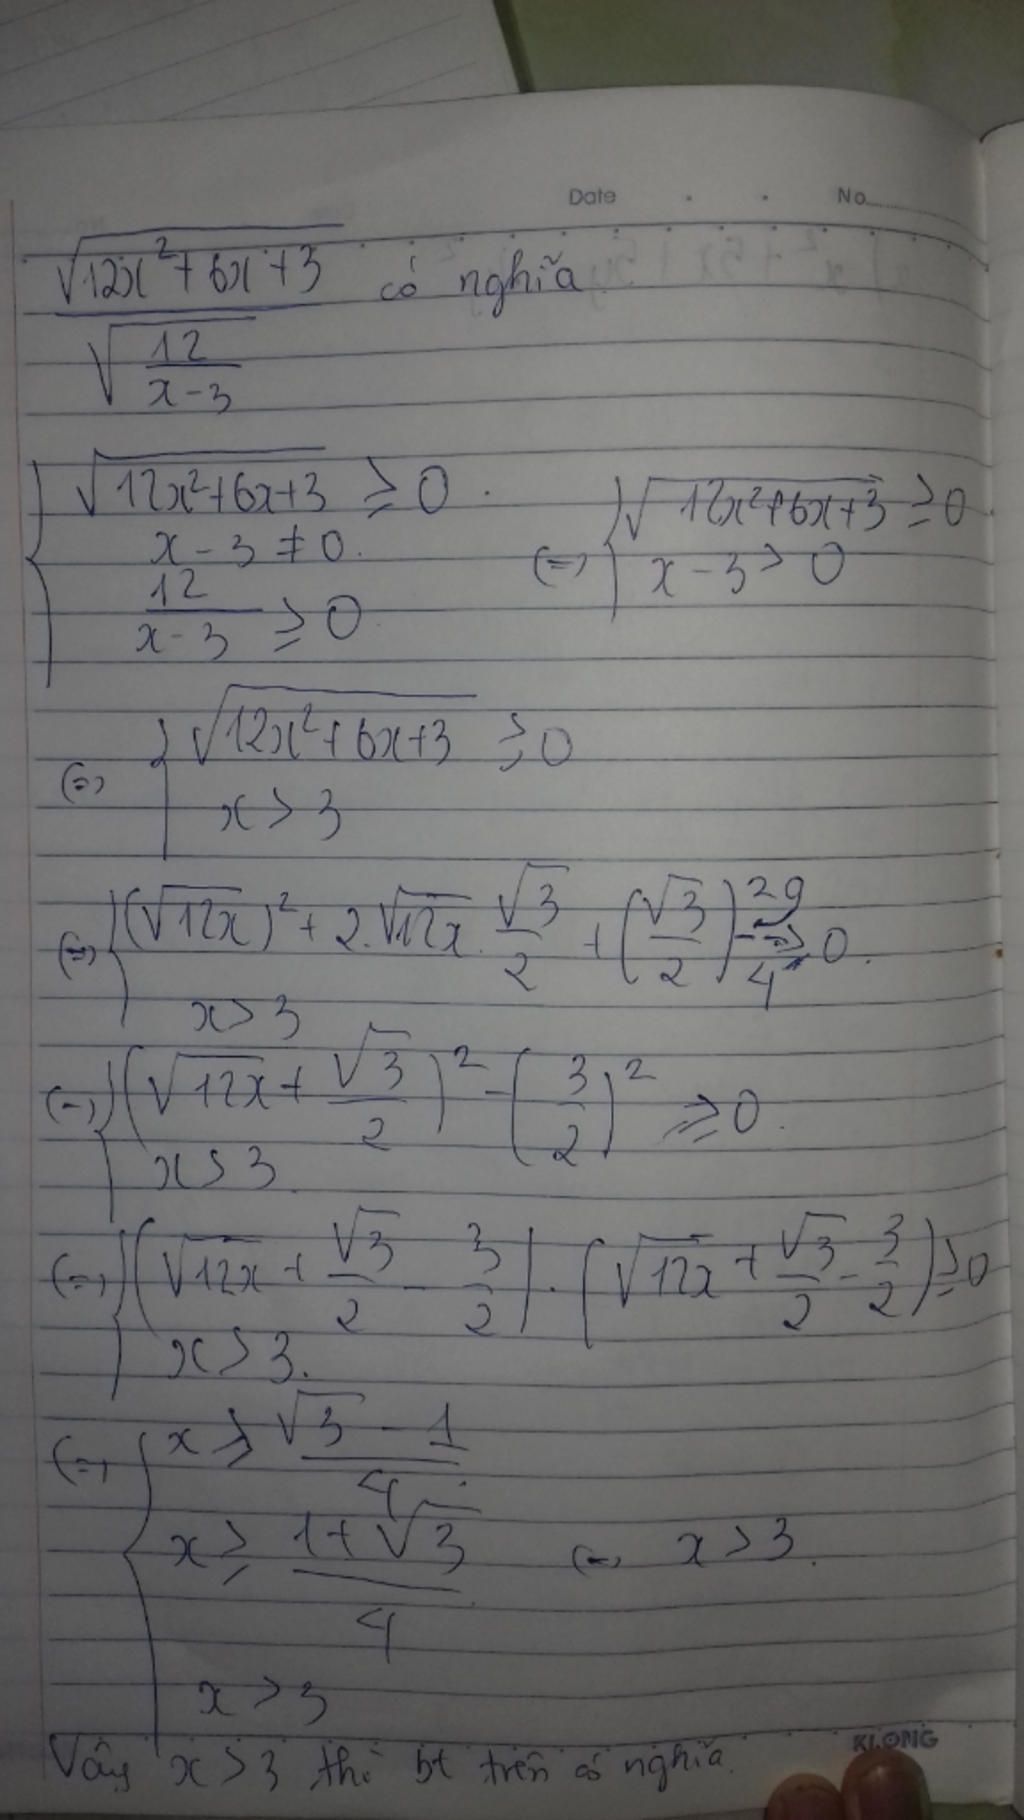 Date . . No.......
\frac{\sqrt{12x^2+6x+3}}{\sqrt{\frac{12}{x-3}}} có nghĩa
{ \sqrt{12x^2+6x+3} ≥ 0 . (=) { \sqrt{12x^2+6x+3} ≥ 0
x-3 ≠ 0. x-3 > 0
\frac{12}{x-3} ≥ 0
(=) { \sqrt{12x^2+6x+3} ≥ 0
x > 3
(=) { (\sqrt{12x})^2 + 2.\sqrt{12x}.\frac{\sqrt{3}}{2} + (\frac{\sqrt{3}}{2}) - \frac{9}{4} ≥ 0.
x > 3
(=) { (\sqrt{12x} + \frac{\sqrt{3}}{2})^2 - (\frac{3}{2})^2 ≥ 0.
x > 3
(=) { (\sqrt{12x} + \frac{\sqrt{3}}{2} - \frac{3}{2}) . (\sqrt{12x} + \frac{\sqrt{3}}{2} - \frac{3}{2}) ≥ 0
x > 3.
(=) { x ≥ \frac{\sqrt{3}-1}{4}
x ≥ \frac{1+\sqrt{3}}{4} (=) x > 3.
x > 3
Vậy x > 3 thì bt trên có nghĩa.
KLONG